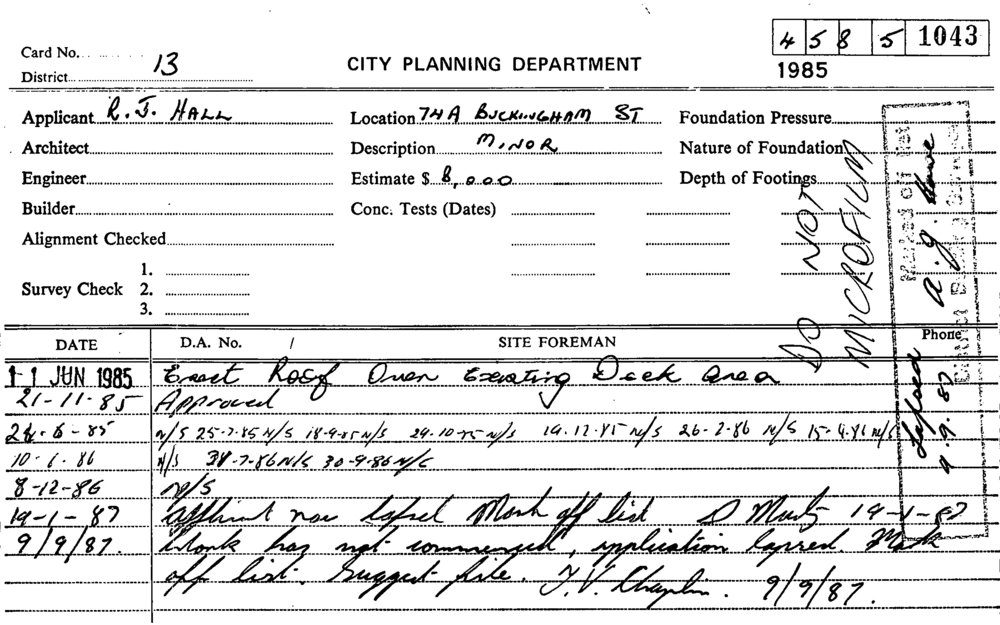 4 5 8 5 1043
1985
Card No.
District 13
CITY PLANNING DEPARTMENT
Applicant R. J. HALL
Location 74A BUCKINGHAM ST
Foundation Pressure
Architect
Description MINOR
Nature of Foundation
Engineer
Estimate $ 8,000
Depth of Footings
Builder
Conc. Tests (Dates)
Alignment Checked
Survey Check 1.
2.
3.
DO NOT
MICROFILM
Marked off list
a. g. Howe
District Building Surveyor
Lapsed
9.9.87
DATE D.A. No. / SITE FOREMAN Phone
11 JUN 1985 Erect Roof Over Existing Deck area
21-11-85 Approved
24-6-85 N/S 25-7-85 N/S 18-9-85 N/S 29-10-85 N/S 19.12.85 N/S 26-2-86 N/S 15-4-86 N/S
10-6-86 N/S 31-7-86 N/S 30-9-86 N/S
8-12-86 N/S
19-1-87 now lapsed Mark off list 19-1-87
9/9/87. Work has not commenced, application lapsed. Mark
off list. Suggest file. T.V. Chaplin. 9/9/87.